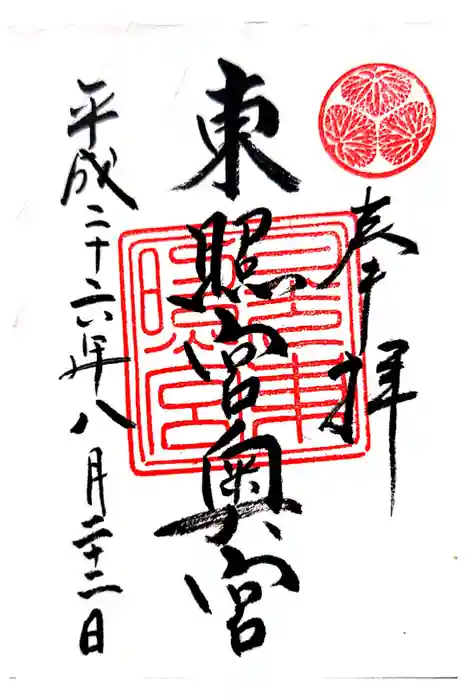 奉拝
東照宮奥宮
平成二十六年八月二十二日